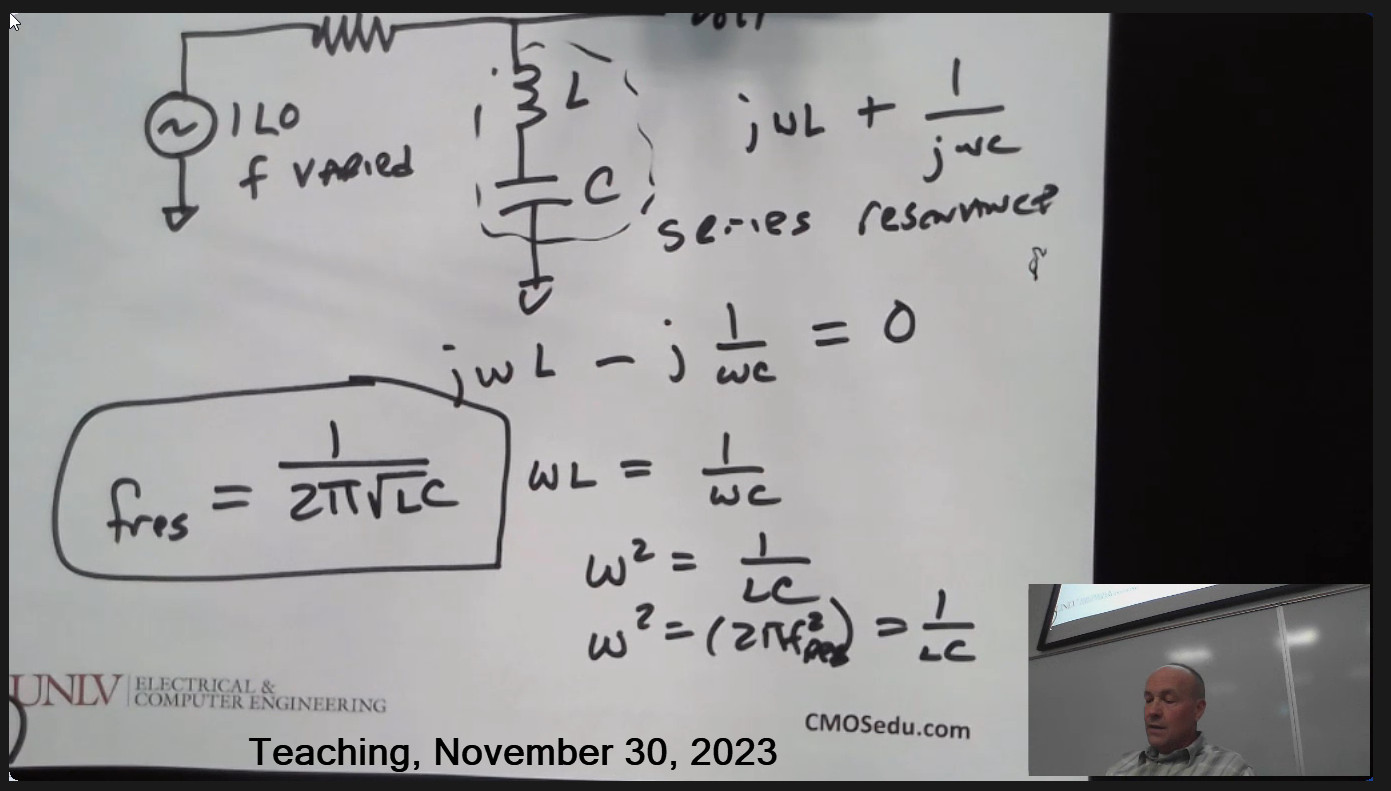 1∠0
f VARIED
L
C
jωL + 1/jωC
series resonance?
jωL - j 1/ωC = 0
fres = 1/2π√LC
ωL = 1/ωC
ω² = 1/LC
ω² = (2πf²res) = 1/LC
UNLV | ELECTRICAL &
COMPUTER ENGINEERING
CMOSedu.com
Teaching, November 30, 2023